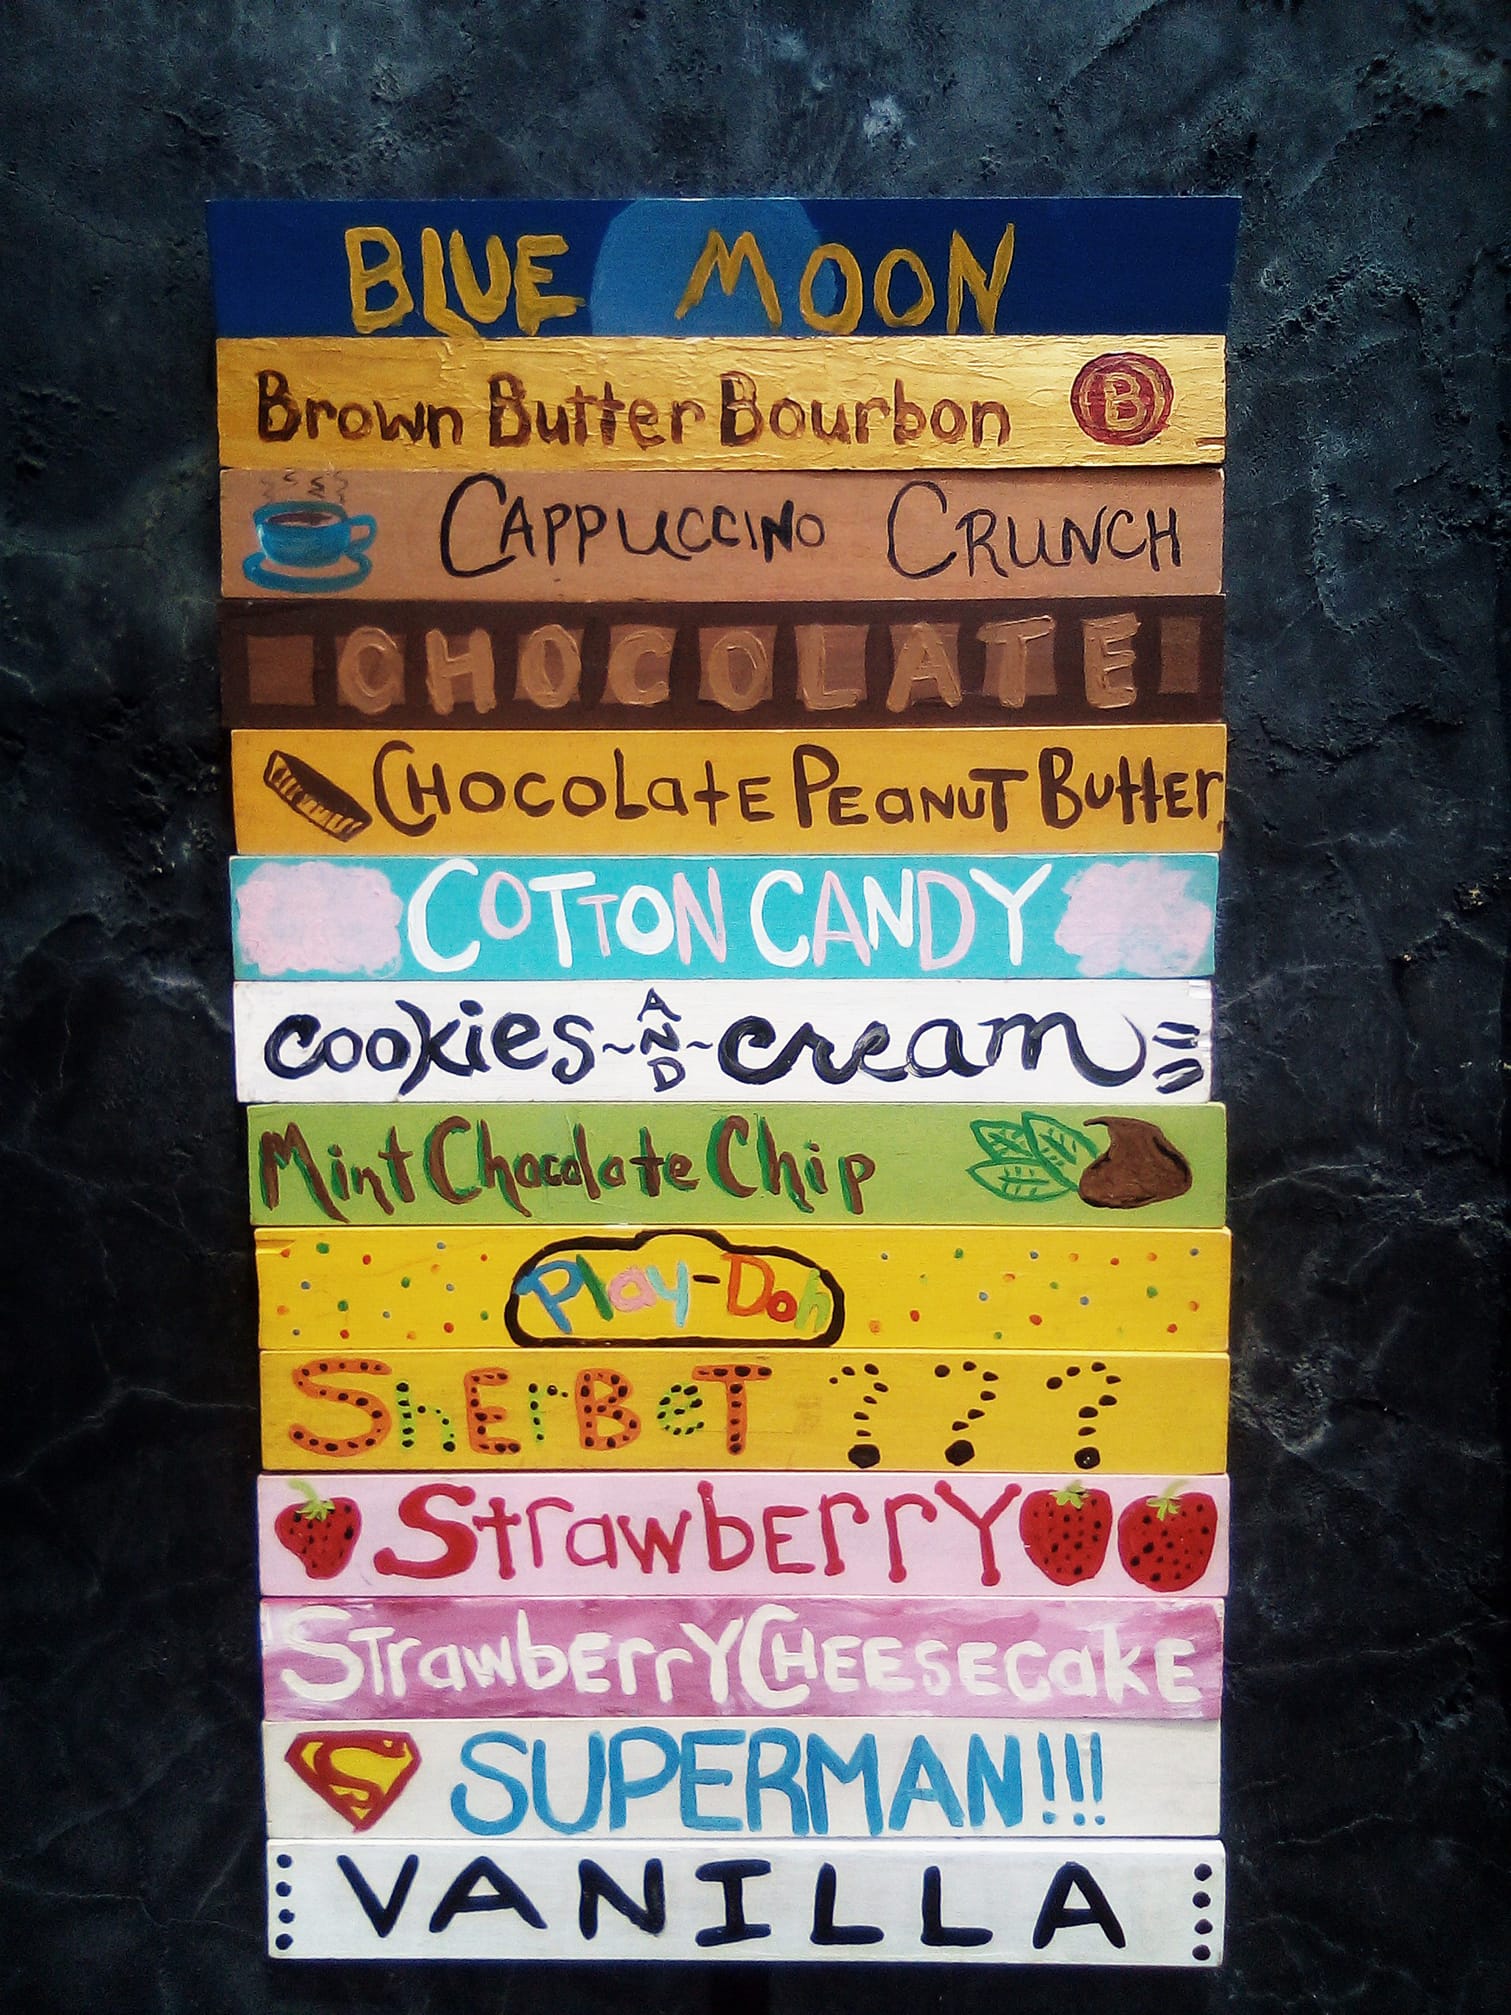 BLUE MOON
Brown Butter Bourbon B
CAPPUCCINO CRUNCH
CHOCOLATE
CHOCOLatE PEaNUT Butter
COTTON CANDY
cookies ~AND~ cream
Mint Chocolate Chip
Play-Doh
SherBeT ???
StrawbErrY
STrawbErrY CHEESEcaKE
S SUPERMAN!!!
VANILLA